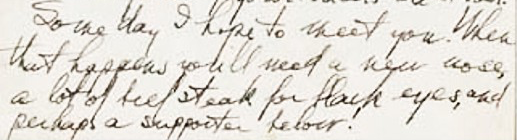 Some day I hope to meet you. When
that happens you'll need a new nose,
a lot of beefsteak for black eyes, and
perhaps a supporter below!